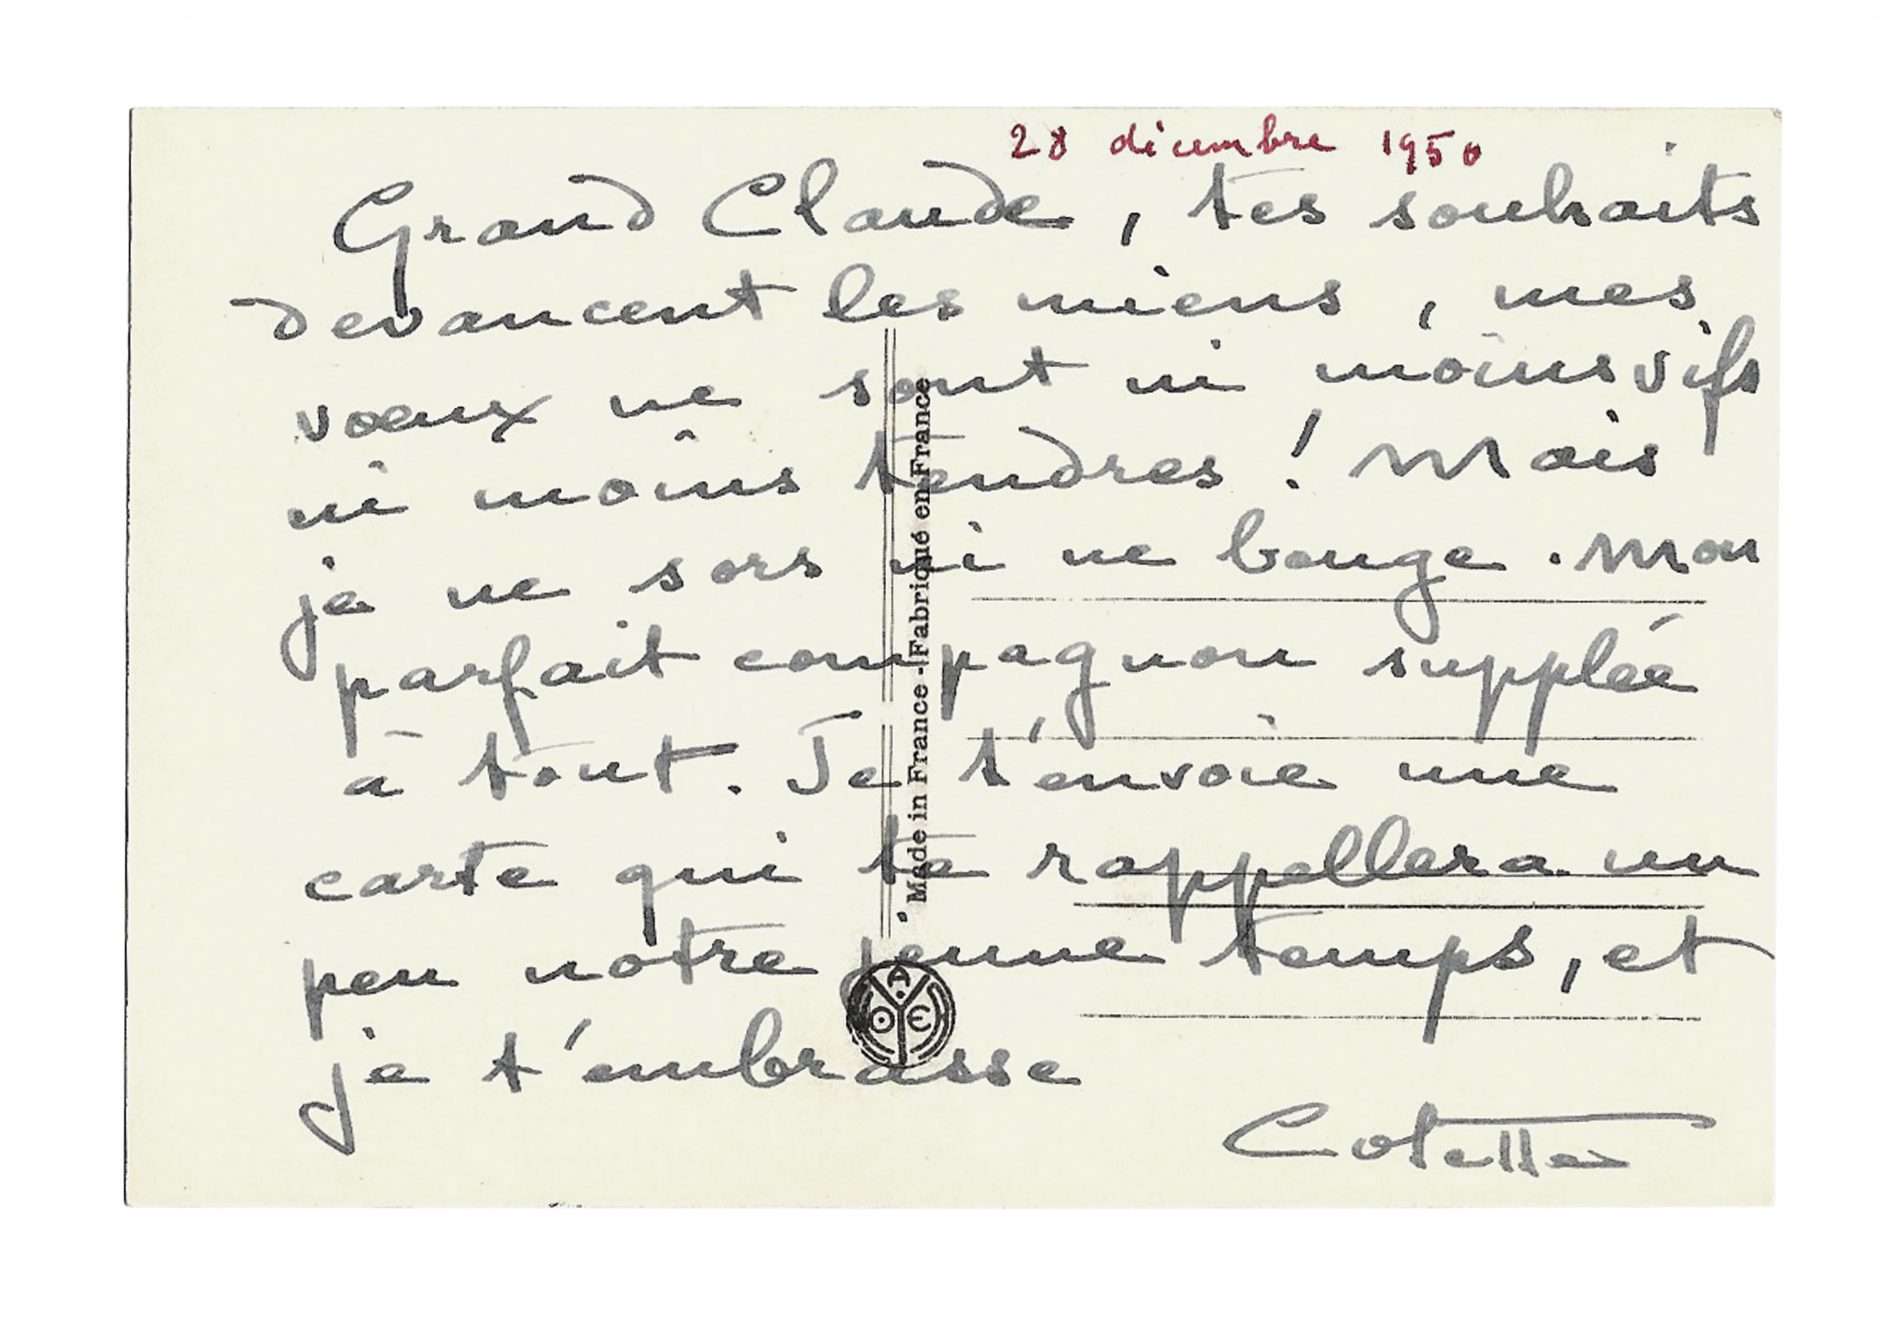 28 décembre 1950
Grand Claude, tes souhaits
devancent les miens, mes
voeux ne sont ni moins vifs
ni moins tendres! Mais
je ne sors ni ne bouge. Mon
parfait compagnon supplée
à tout. Je t'envoie une
carte qui te rappellera un
peu notre jeune temps, et
je t'embrasse
Colette
Made in France - Fabriqué en France
A.
O E